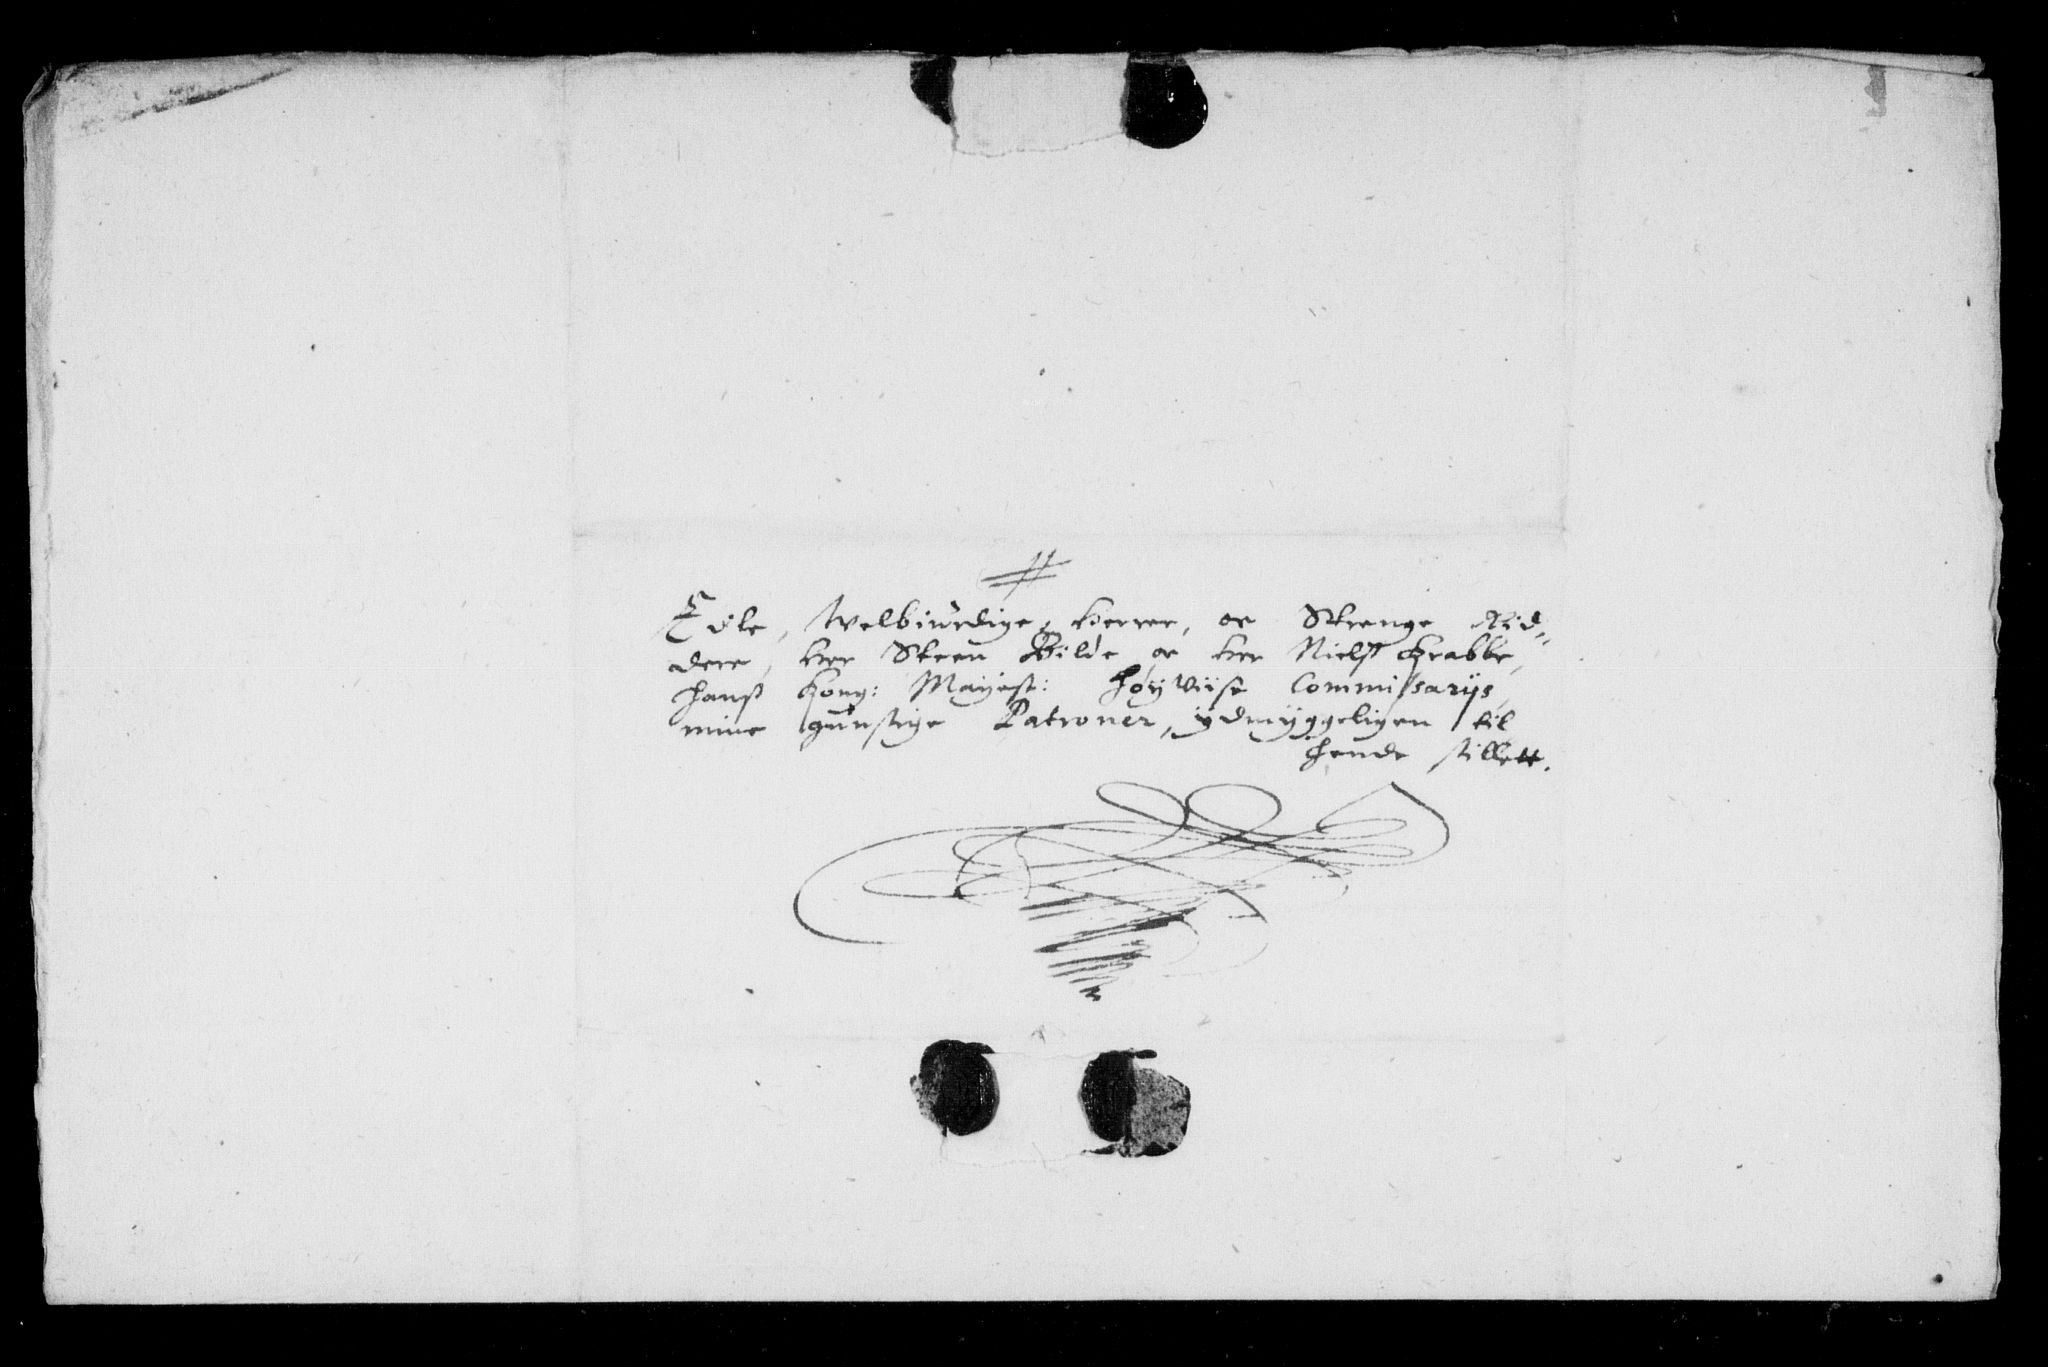 Edle, Welbiurdige, Herrer, oc Strenge Rid=
dere, Her Steen Bilde oc Her Nielß Krabbe,
Hanß Kong: Mayest: Høy Viise Commissarijs,
mine gunstige Patroner, ydmyggeligen til
hende stillett.